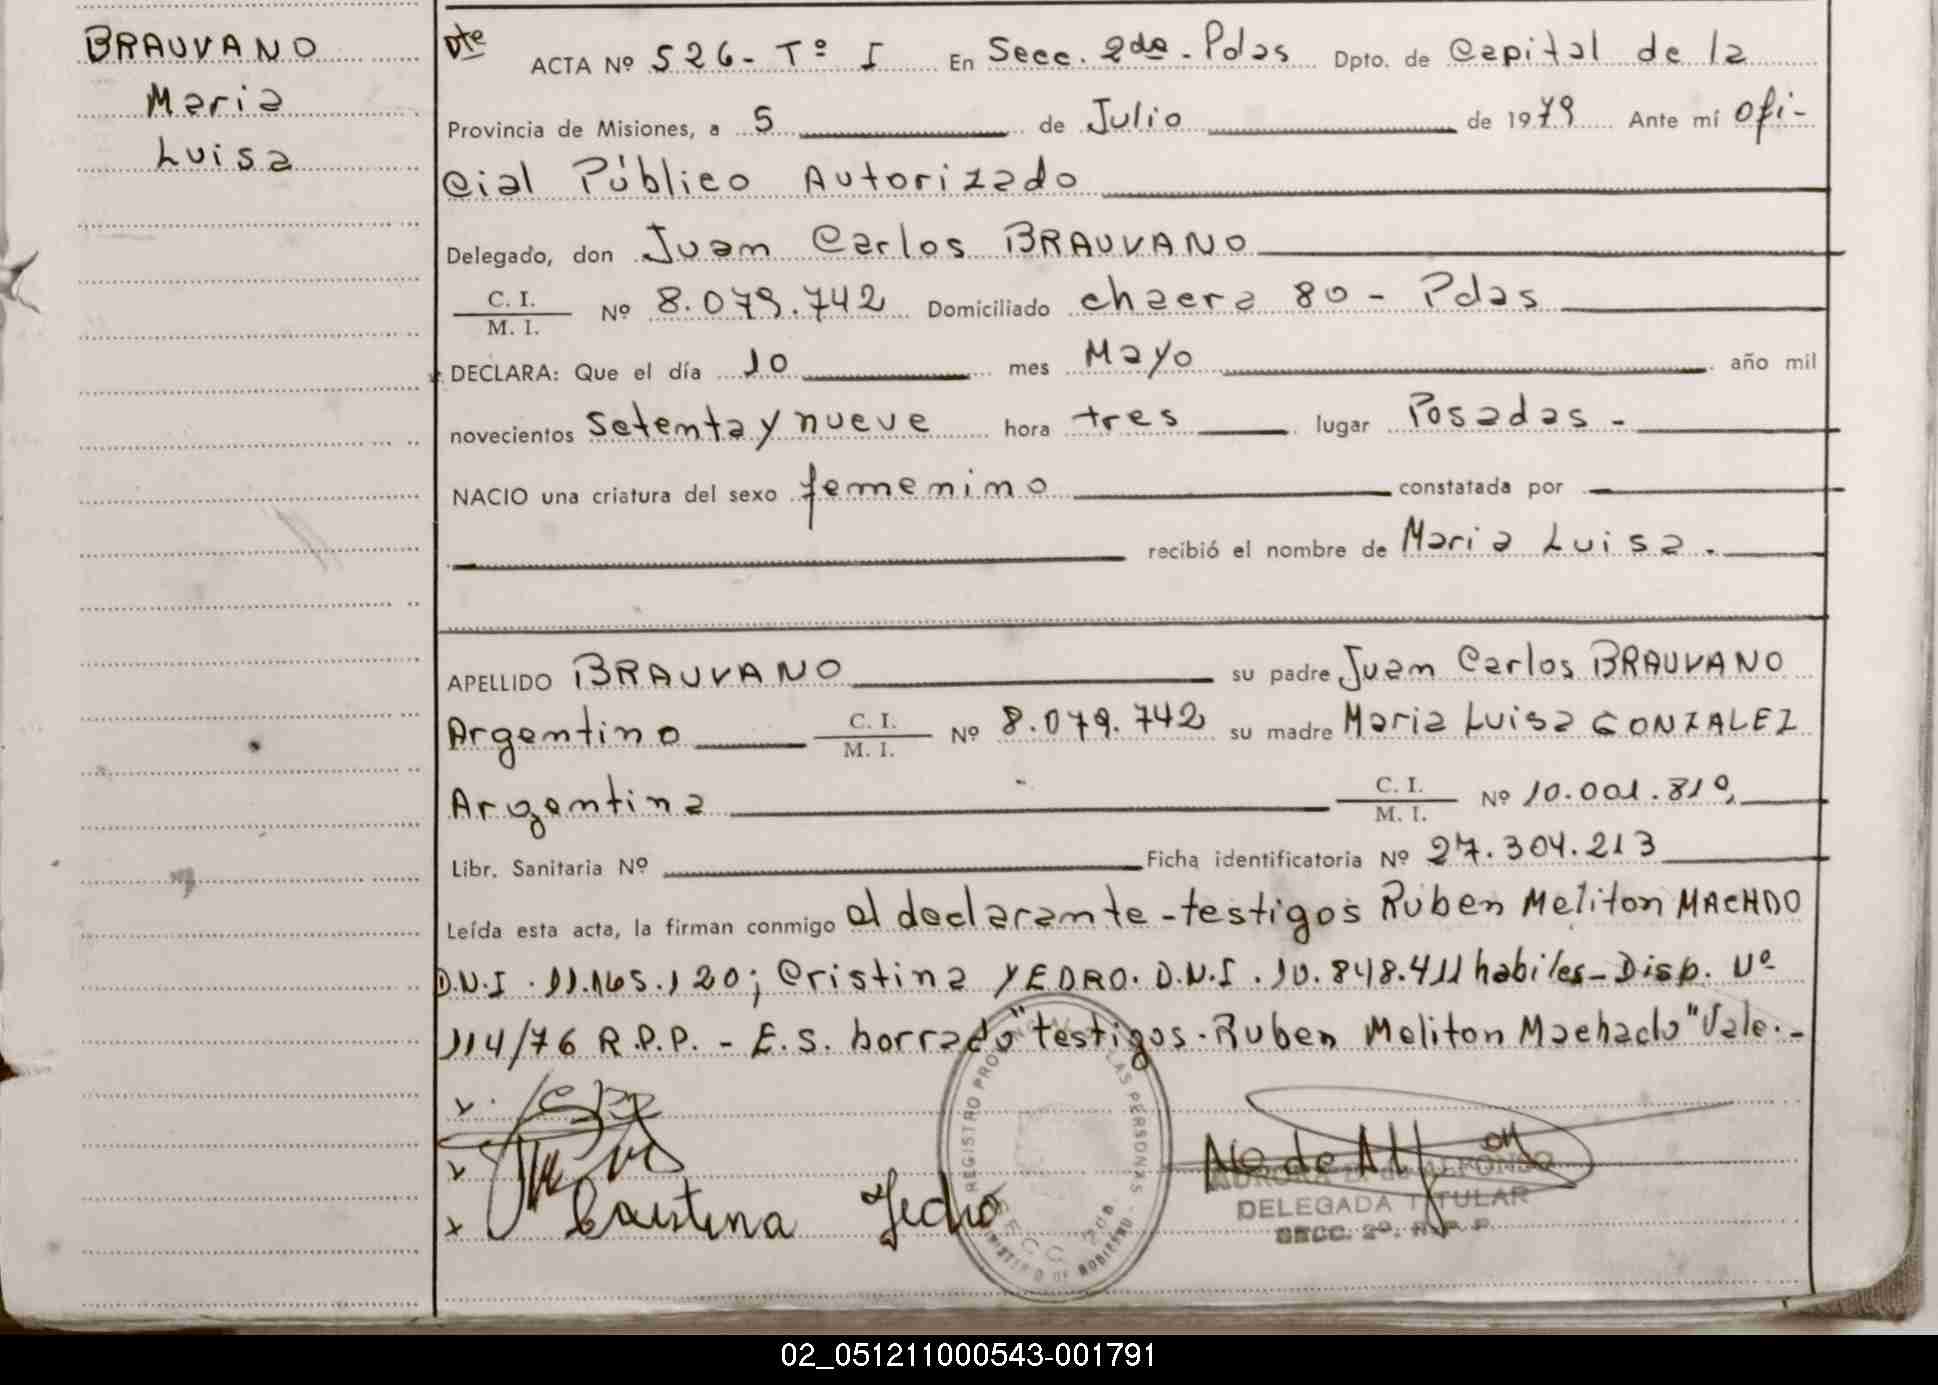 BRAUVANO
Maria
Luisa
Dte
ACTA Nº 526 - Tº I En Secc. 2da - Pdas Dpto. de Capital de la
Provincia de Misiones, a 5 de Julio de 1979 Ante mí Ofi-
cial Público Autorizado
Delegado, don Juan Carlos BRAUVANO
C. I.
M. I. Nº 8.079.742 Domiciliado chacra 80 - Pdas
DECLARA: Que el día 10 mes Mayo año mil
novecientos setenta y nueve hora tres lugar Posadas -
NACIO una criatura del sexo femenino constatada por
recibió el nombre de Maria Luisa.
APELLIDO BRAUVANO su padre Juan Carlos BRAUVANO
Argentino C. I. M. I. Nº 8.079.742 su madre Maria Luisa GONZALEZ
Argentina C. I. M. I. Nº 10.001.810
Libr. Sanitaria Nº Ficha identificatoria Nº 27.304.213
Leída esta acta, la firman conmigo el declarante - testigos Ruben Meliton MACHDO
D.N.I. 11.165.120; Cristina YEDRO. D.N.I. 10.848.411 habiles - Disp. Nº
114/76 R.P.P. - E.S. borrado "testigos - Ruben Meliton Machado" Vale. -
Cristina Yedro
REGISTRO PROVINCIAL DE LAS PERSONAS
SECC. 2da.
MINISTERIO DE GOBIERNO
DELEGADA TITULAR
SECC. 2º. R. P. P.
02_051211000543-001791